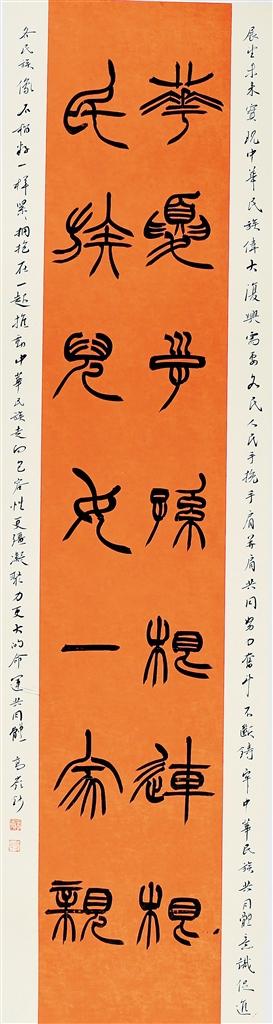 展望未来實現中華民族偉大復興需要各民人民手挽手肩并肩共同努力奮斗不斷鑄牢中華民族共同體意識促進
華夏子孫根連根
民族兒女一家親
各民族像石榴籽一样緊々拥抱在一起推動中華民族走向包容性更强凝聚力更大的命運共同體 高